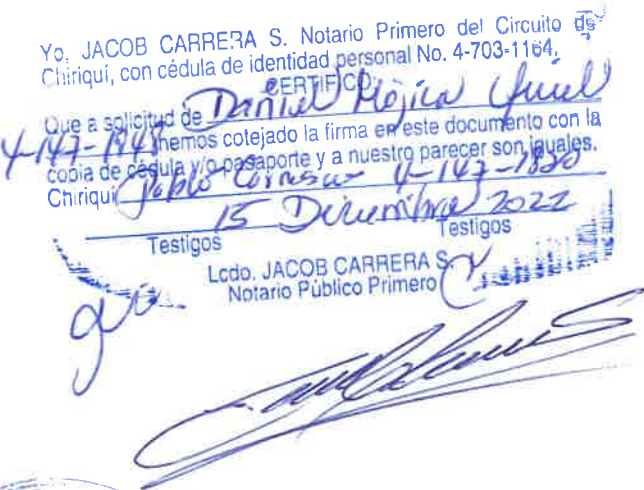 Yo, JACOB CARRERA S. Notario Primero del Circuito de
Chiriquí, con cédula de identidad personal No. 4-703-1164,
CERTIFICO:
Que a solicitud de Daniel Mojica
4-147- hemos cotejado la firma en este documento con la
copia de cédula y/o pasaporte y a nuestro parecer son iguales.
Chiriquí Pablo 4-147-1820
15 Diciembre 2022
Testigos Testigos
Lcdo. JACOB CARRERA S.
Notario Público Primero